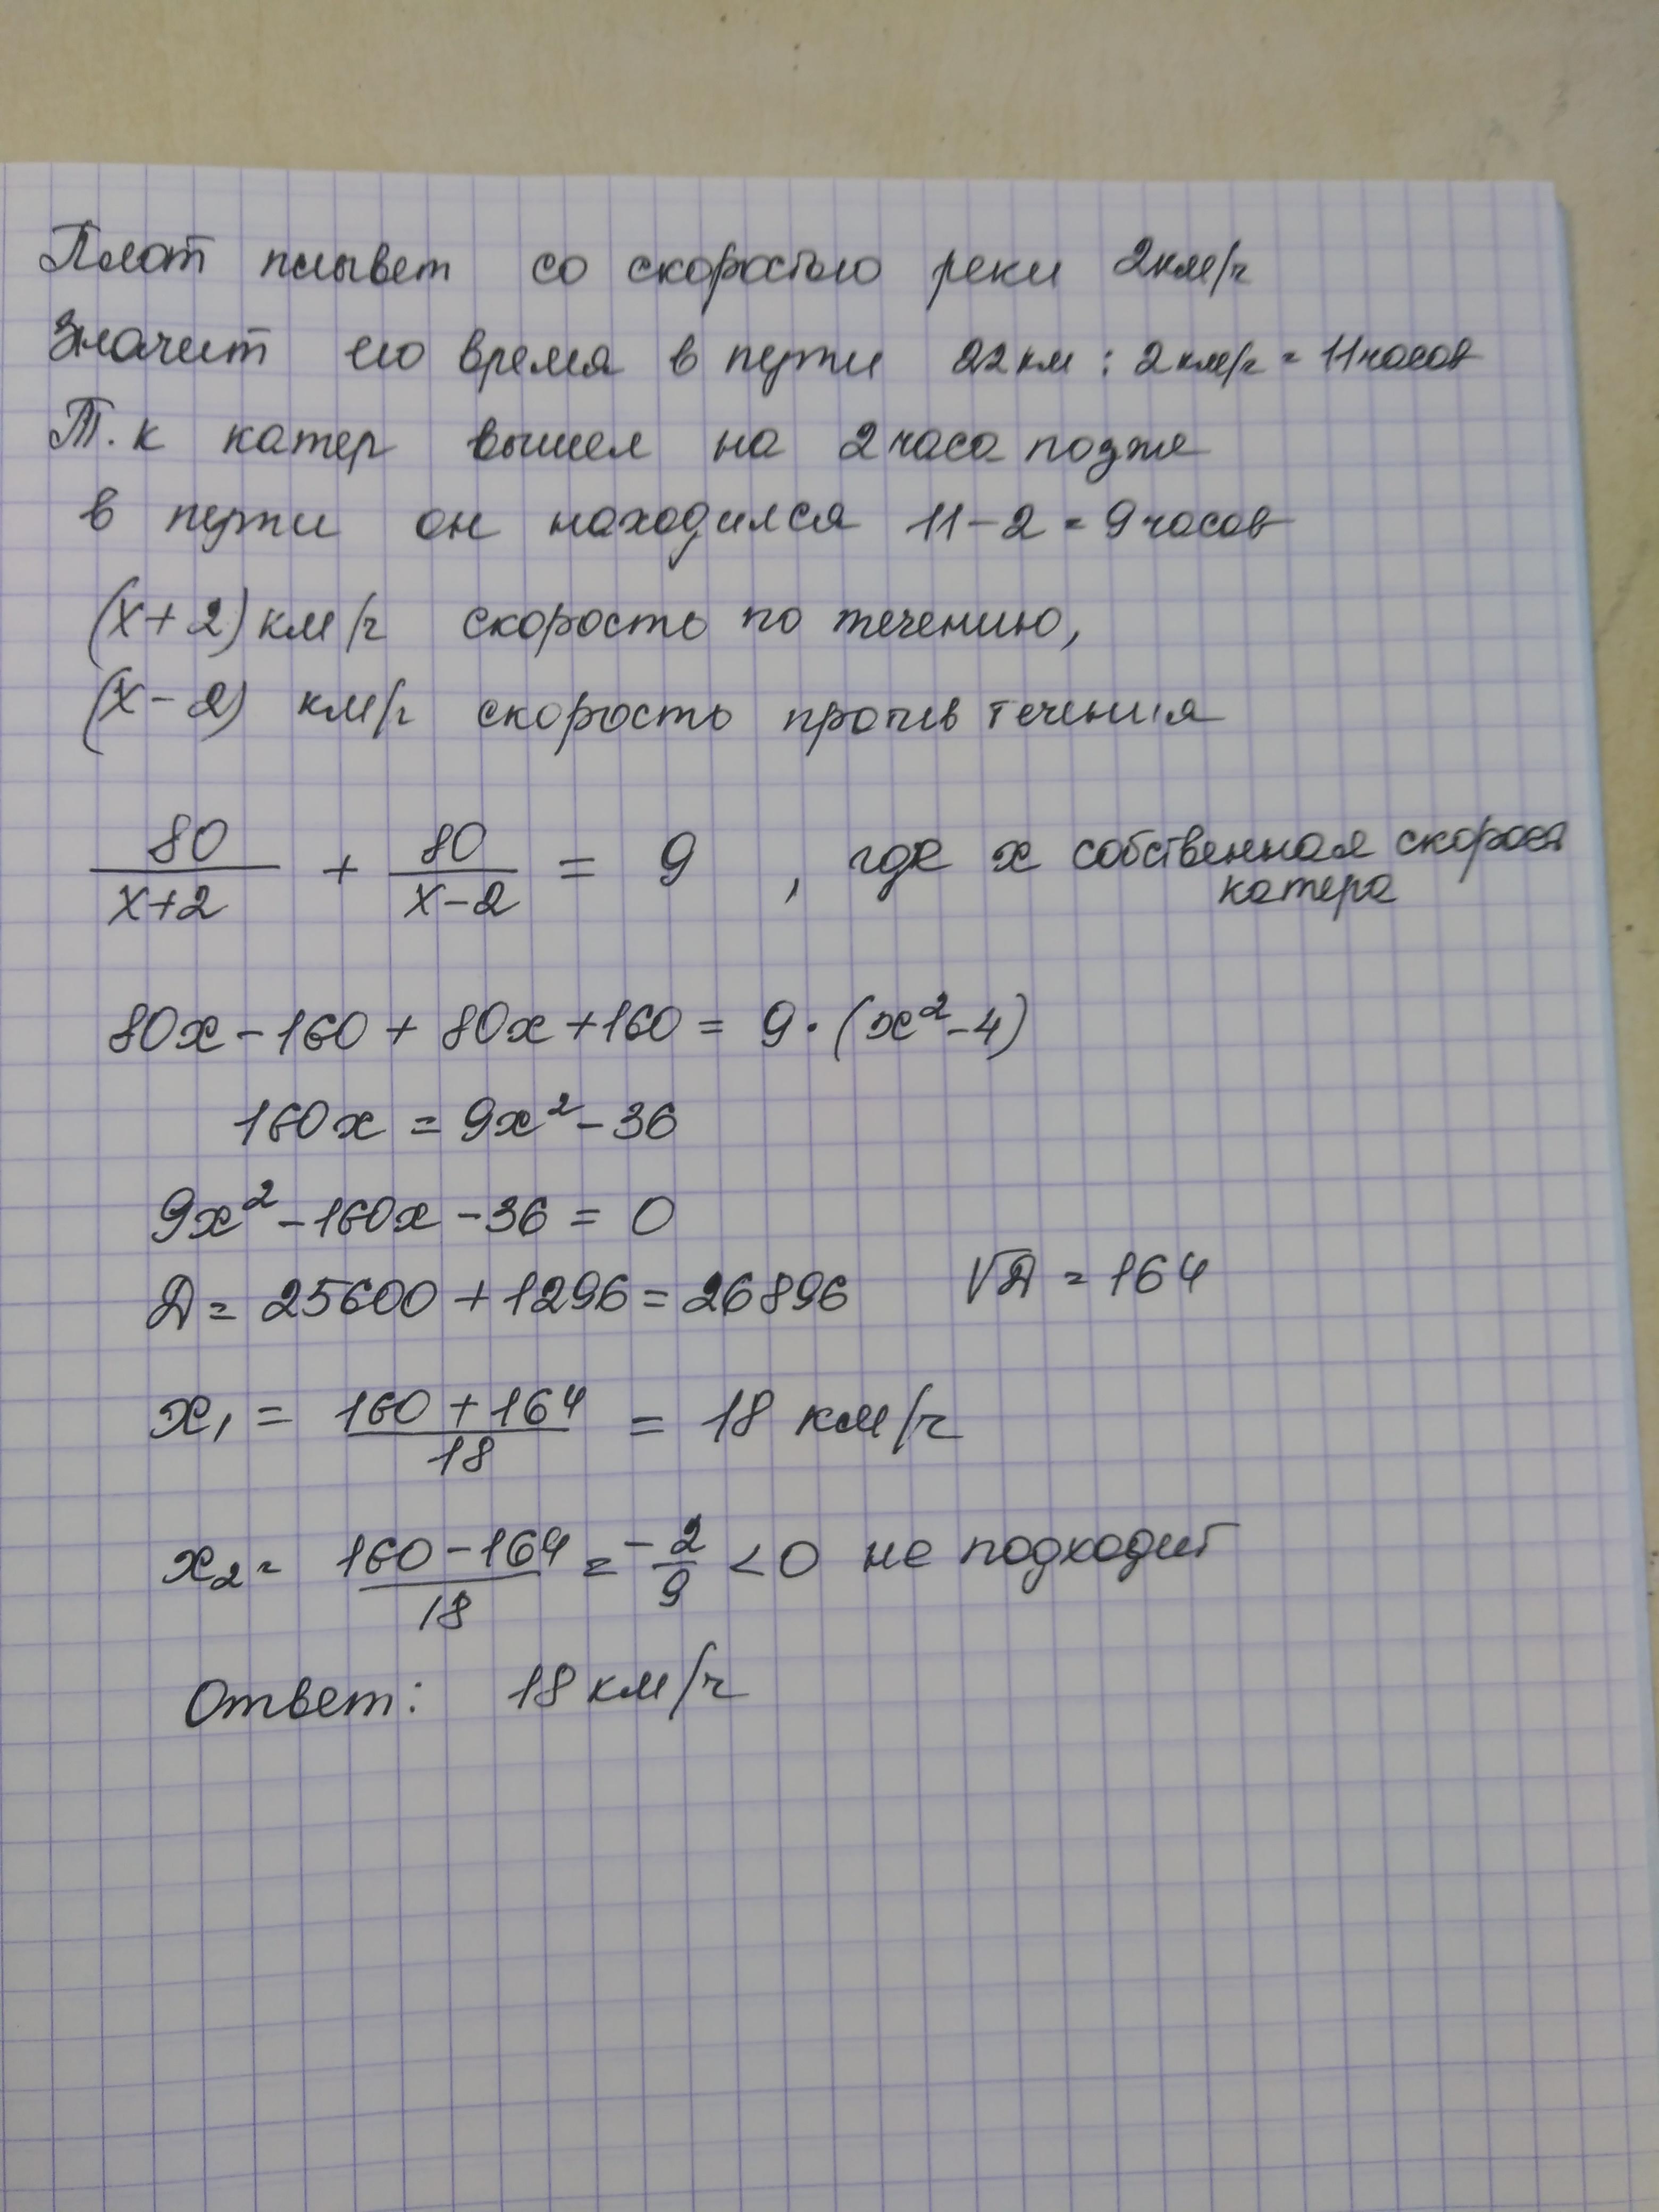 Плот плывет со скоростью реки 2км/ч
Значит его время в пути 22 км : 2 км/ч = 11 часов
Т.к катер вышел на 2 часа позже
в пути он находился 11 - 2 = 9 часов
(x+2) км/ч скорость по течению,
(x-2) км/ч скорость против течения
80/(x+2) + 80/(x-2) = 9 , где x собственная скорость
катера
80x - 160 + 80x + 160 = 9 · (x² - 4)
160x = 9x² - 36
9x² - 160x - 36 = 0
Д = 25600 + 1296 = 26896 √Д = 164
x₁ = (160 + 164)/18 = 18 км/ч
x₂ = (160 - 164)/18 = -2/9 < 0 не подходит
Ответ: 18 км/ч